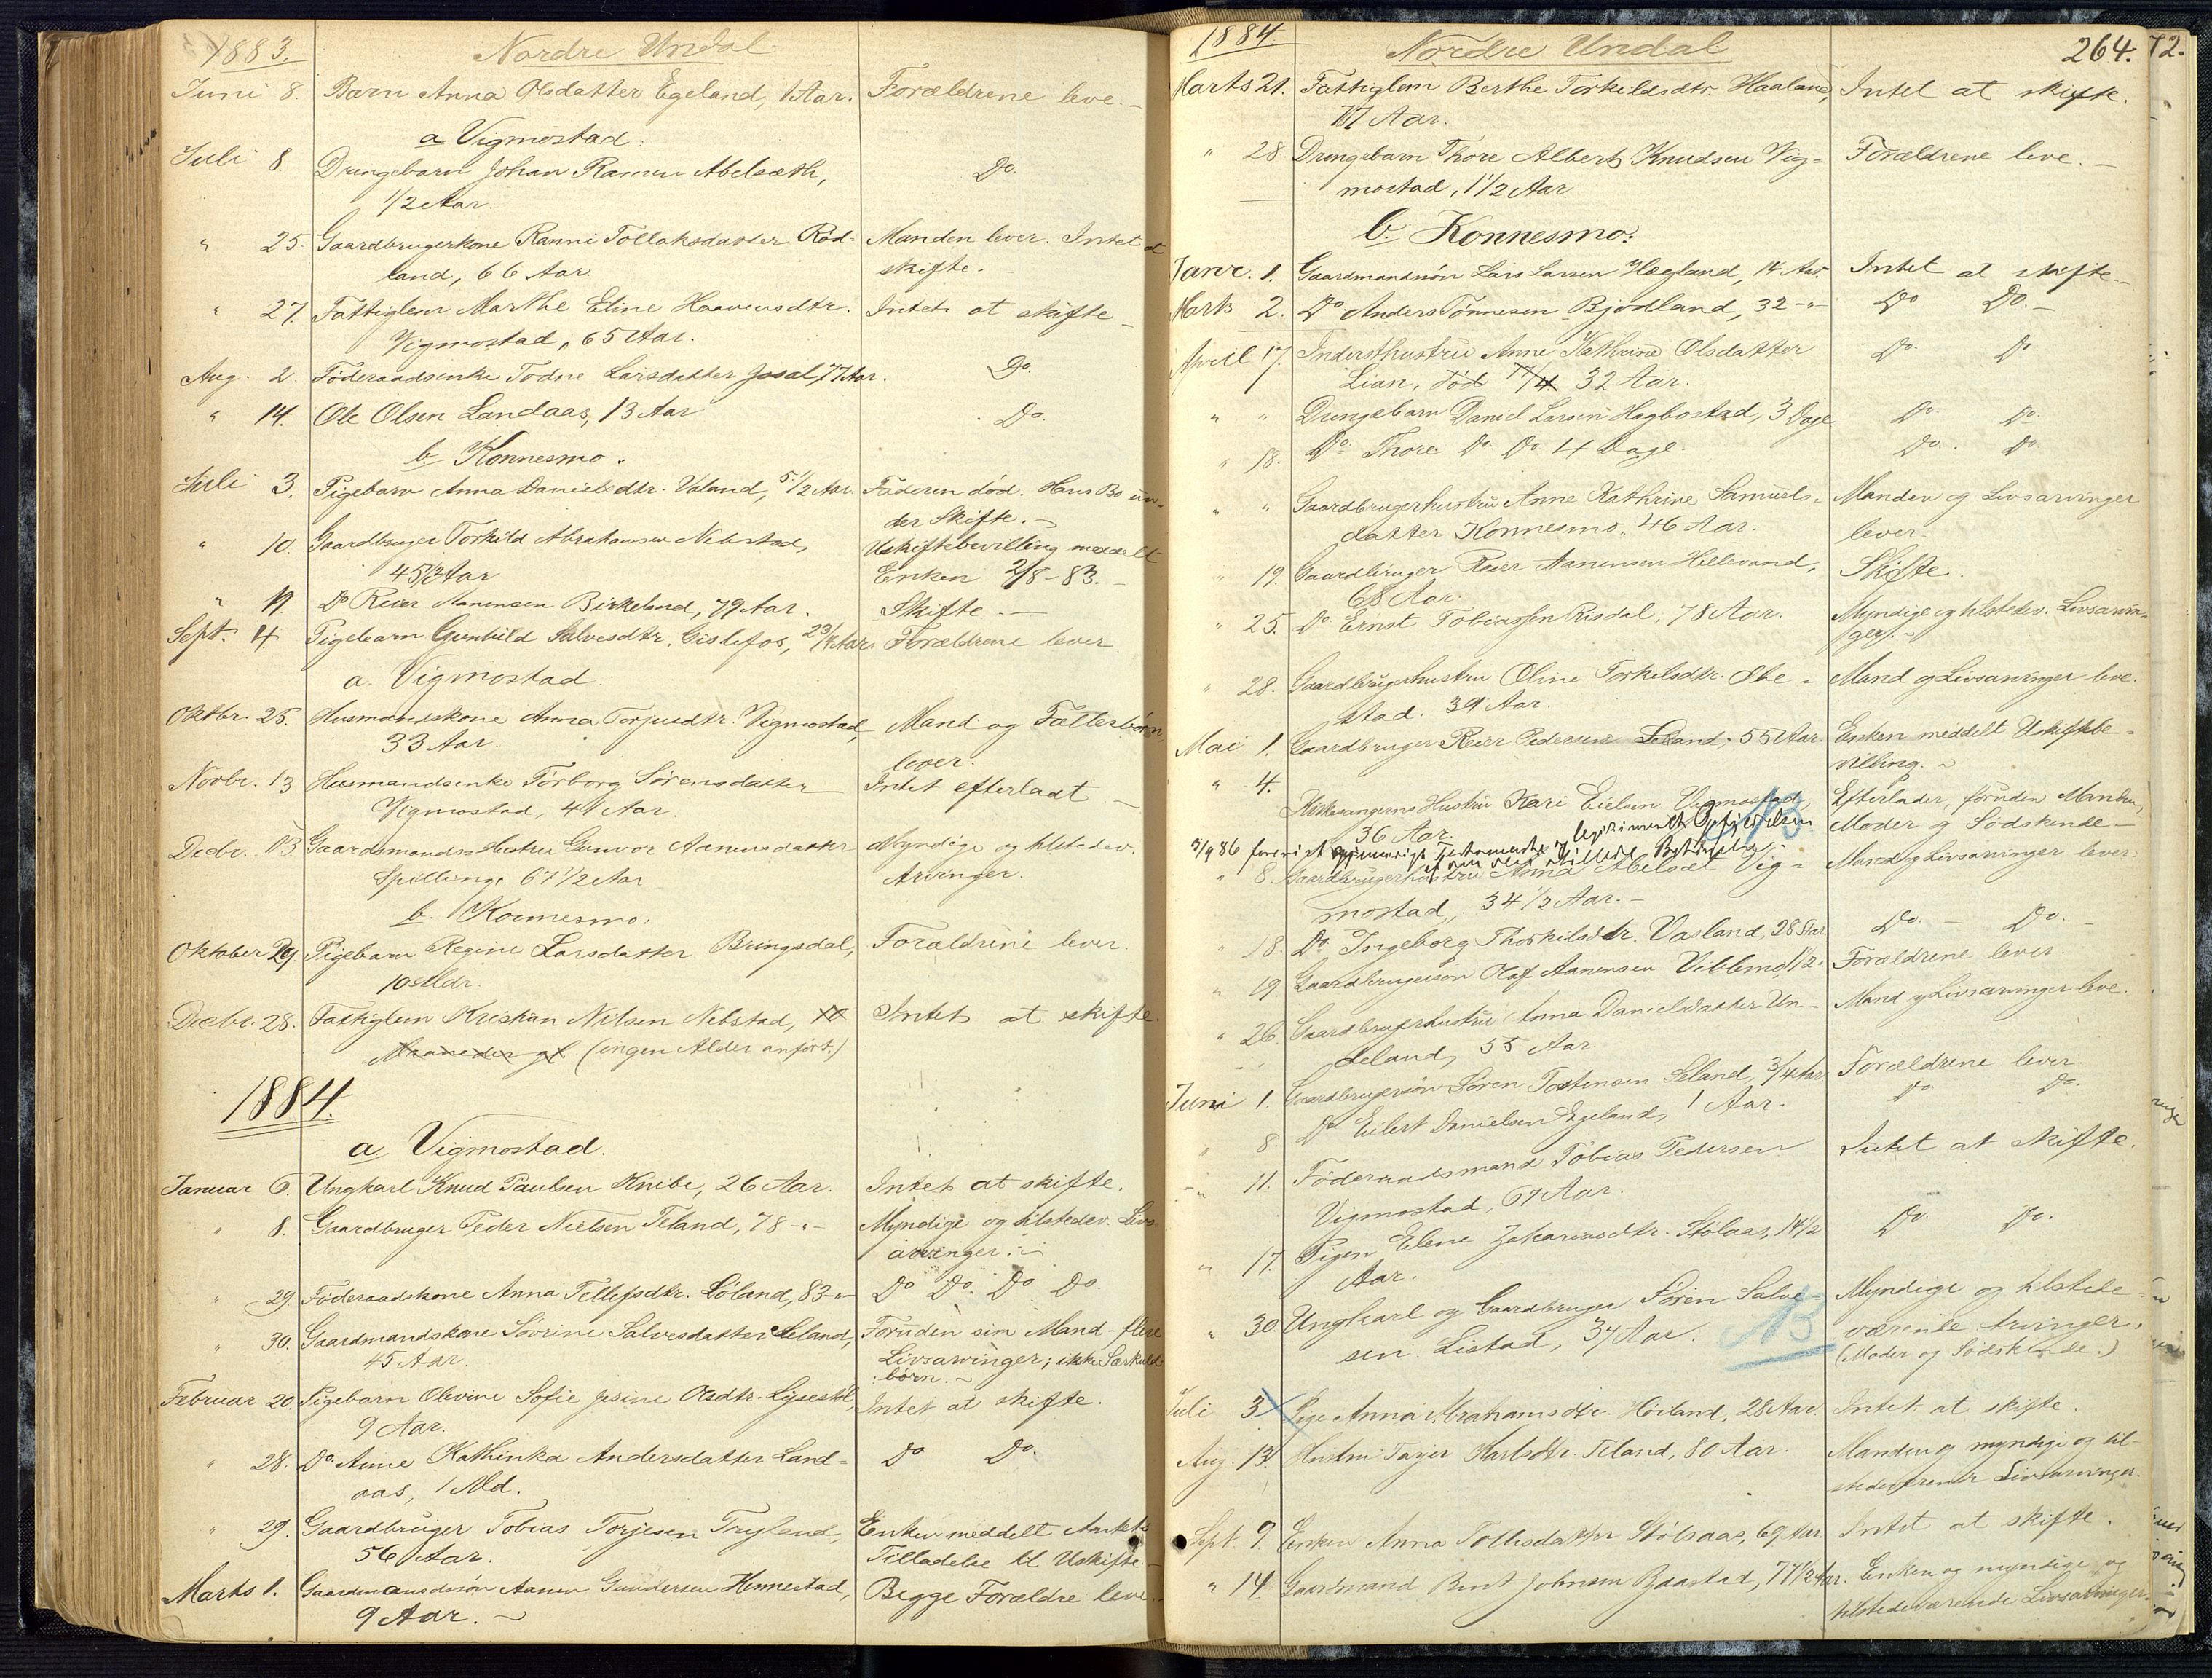 1883.
Nordre Undal
Juni 8. Barn Anna Olsdatter Egeland, 1 Aar. Forældrene leve. –
a Vigmostad.
Juli 8. Drengebarn Johan Rasmus Abelsæth, Do.
1/2 Aar.
" 25. Gaardbrugerkone Ranni Tollaksdatter Rød- Manden lever. Intet at
land, 66 Aar. skifte.
" 27. Fattiglem Marthe Eline Haavensdtr. Intet at skifte –
Vigmostad, 65 Aar.
Aug. 2. Föderaadsenke Todne Larsdatter Josal, 77 Aar. Do.
" 14. Ole Olsen Landaas, 13 Aar Do.
b Konnesmo.
Juli 3. Pigebarn Anna Danielsdtr. Valand, 5 1/2 Aar. Faderen død. Hans Bo un-
der Skifte. –
" 10. Gaardbruger Torkild Abrahamsen Nebstad, Uskiftebevilling meddelt
45 1/2 Aar Enken 2/8-83. –
" Do Reier Aanensen Birkeland, 79 Aar. Skifte. –
Sept. 4. Pigebarn Gunhild Salvesdtr. Gislefos, 2 3/4 Aar. Forældrene lever
a. Vigmostad.
Oktbr. 25. Husmandskone Anna Torjusdtr. Vigmostad, Mand og Fællesbørn
33 Aar. lever.
Novbr. 13 Husmandsenke Törborg Sörensdatter Intet efterladt –
Vigmostad, 41 Aar.
Decbr. 13. Gaardsmands Hustru Gunvor Aanensdatter Myndige og tilstedev.
Spilling, 67 1/2 Aar Arvinger.
b. Konnesmo.
Oktober 29. Pigebarn Regine Larsdatter Bringsdal, Forældrene lever.
10 Mdr.
Decbr. 28. Fattiglem Kristian Nilsen Nebstad, Intet at skifte.
Maaneder gl (ingen Alder anført.)
1884.
a Vigmostad.
Januar 6. Ungkarl Knud Paulsen Knibe, 26 Aar. Intet at skifte.
" 8. Gaardbruger Peder Nielsen Teland, 78 -"- Myndige og tilstedev. Livs-
arvinger.
" 29. Föderaadskone Anna Tellefsdtr. Löland, 83 -"- Do Do. Do Do.
" 30. Gaardmandskone Sövrine Salvesdatter Leland, Foruden sin Mand – flere
45 Aar. Livsarvinger; ikke Særkuld-
börn. –
Februar 20. Pigebarn Olevine Sofie Jesine Olsdtr. Lysestöl, Intet at skifte.
9 Aar.
" 28. Do. Anne Kathinka Andersdatter Land- Do Do.
aas, 1 Md.
" 29. Gaardbruger Tobias Torjesen Trygland, Enken meddelt Amtets
56 Aar. Tilladelse til Uskifte –
Marts 1. Gaardmandssøn Aanen Gundersen Hennestad, Begge Forældre leve.
9 Aar. –
1884
Nordre Undal
264. 72.
Marts 21. Fattiglem Berthe Torkildsdtr. Haaland, Intet at skifte.
77 Aar.
" 28 Drengebarn Thore Albert Knudsen Vig- Forældrene leve. –
mostad, 1 1/2 Aar.
b. Konnesmo.
Janr. 1. Gaardmandsön Lars Larsen Hægland, 14 Aar. Intet at skifte. –
Marts 2. Do Anders Tönnesen Bjödland, 32 -"- Do Do. –
April 17. Indersthustru Anne Kathrine Olsdatter Do. Do
Lian, död 17/4 32 Aar.
" " Drengebarn Daniel Larsen Hægbostad, 3 Dage Do. Do.
" 18. Do. Thore Do. Do. 4 Dage. Do. Do.
" " Gaardbrugerhustru Anne Kathrine Samuels- Manden og Livsarvinger
datter Konnesmo, 46 Aar. lever.
" 19. Gaardbruger Reier Aanensen Hellevand, Skifte.
68 Aar.
" 25. Do. Ernst Tobiassen Risdal, 78 Aar. Myndige og tilstedev. Livsarvin-
ger. –
" 28. Gaardbrugerhustru Oline Torkilsdtr. Obe- Mand og Livsarvinger leve.
stad. 39 Aar.
Mai 1. Gaardbruger Reier Pedersen Leland, 55 Aar. Enken meddelt Uskiftebe-
villing. –
" 4. Kirkesangerens Hustru Kari Eielsen Vigmostad, Efterlader, foruden Manden,
36 Aar. NB Moder og Södskende –
3/9 86 forevist
" 8. Gaardbrugerhustru Anna Abelsdt Vig- Mand og Livsarvinger lever.
mostad, 34 1/2 Aar. –
" 18. Do. Ingeborg Thorkilsdtr. Vasland, 28 Aar. Do. – Do. –
" 19 Gaardbrugersön Olaf Aanensen Vibbmo, 1/2 Forældrene lever.
" 26. Gaardbrugerhustru Anna Danielsdatter Un- Mand og Livsarvinger leve.
deland, 55 Aar.
Juni 1. Gaardbrugersön Sören Tostensen Leland, 3/4 Aar Forældrene lever.
" 8. Do Eilert Danielsen Egeland, 1 Aar. Do Do.
" 11. Föderaadsmand Tobias Pedersen Intet at skifte.
Vigmostad, 67 Aar.
" 17. Pigen Elene Zakariasdtr. Stölaas, 14 1/2 Do. Do.
Aar.
" 30. Ungkarl og Gaardbruger Sören Salve- Myndige og tilstede-
sen Listad, 37 Aar. NB værende Arvinger,
(Moder og Södskende.)
Juli 3 Pige Anna Abrahamsdtr. Höiland, 28 Aar. Intet at skifte.
Aug. 12. Hustru Tayer Karlsdtr. Teland, 80 Aar. Manden og myndige og til-
stedeværende Livsarvinger.
Sept. 9. Enken Anna Tollisdatter Stölsaas, 69 Aar. Intet at skifte.
" 14. Gaardmand Bent Johnsen Baastad, 77 1/2 Aar. Enken og myndige og
tilstedeværende Livsarvinger.